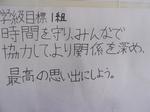 学級目標 1組
時間を守り、みんなで
協力してより関係を深め、
最高の思い出にしよう。